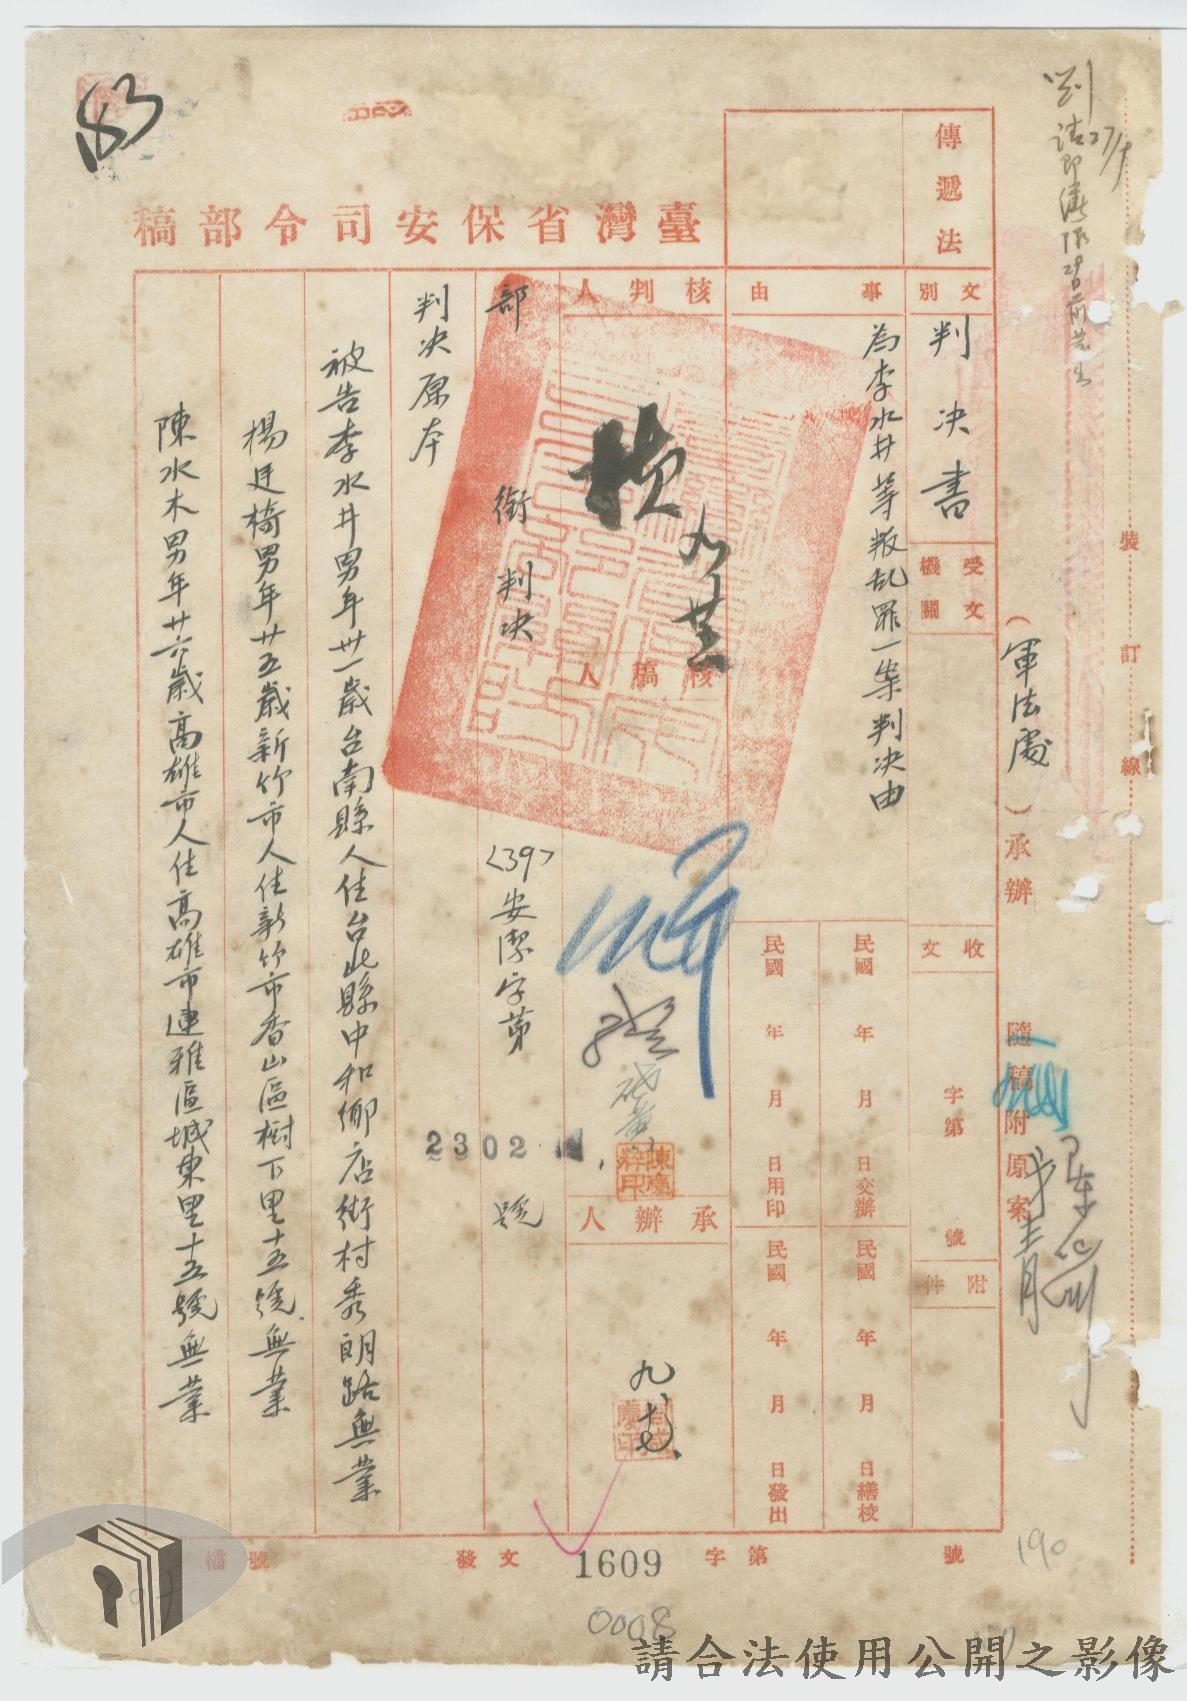 83
臺灣省保安司令部稿
傳遞法
文別
判決書
受文機關
收文
字第
號
附件
事由
為李水井等叛乱罪一案判决由
民國 年 月 日交辦
民國 年 月 日繕校
民國 年 月 日用印
民國 年 月 日發出
核判人
核稿人
承辦人
部衔判决
<39>安潔字第
2302
號
判决原本
被告李水井男年卅一歲台南縣人住台北縣中和鄉店街村秀朗路無業
楊廷椅男年廿五歲新竹市人住新竹市香山區樹下里十五號無業
陳水木男年廿六歲高雄市人住高雄市連雅區城東里十五號無業
(軍法處)承辦
隨稿附原案
裝訂線
檔號
發文
1609
字第
號
190
0008
請合法使用公開之影像